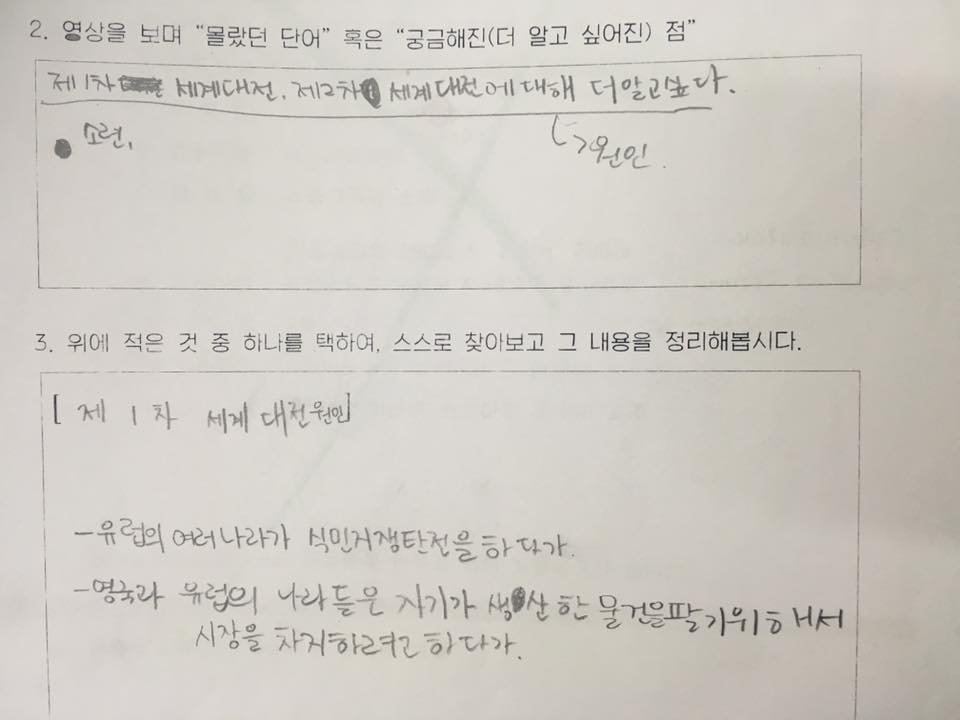 2. 영상을 보며 “몰랐던 단어” 혹은 “궁금해진(더 알고 싶어진) 점”
제1차 세계대전, 제2차 세계대전에 대해 더알고싶다.
소련,
↳ 원인.
3. 위에 적은 것 중 하나를 택하여, 스스로 찾아보고 그 내용을 정리해봅시다.
[ 제 1 차 세계 대전원인]
-유럽의 여러나라가 식민지쟁탄전을 하다가.
-영국과 유럽의 나라들은 자기가 생산한 물건을팔기위해서
시장을 차지하려고 하다가.